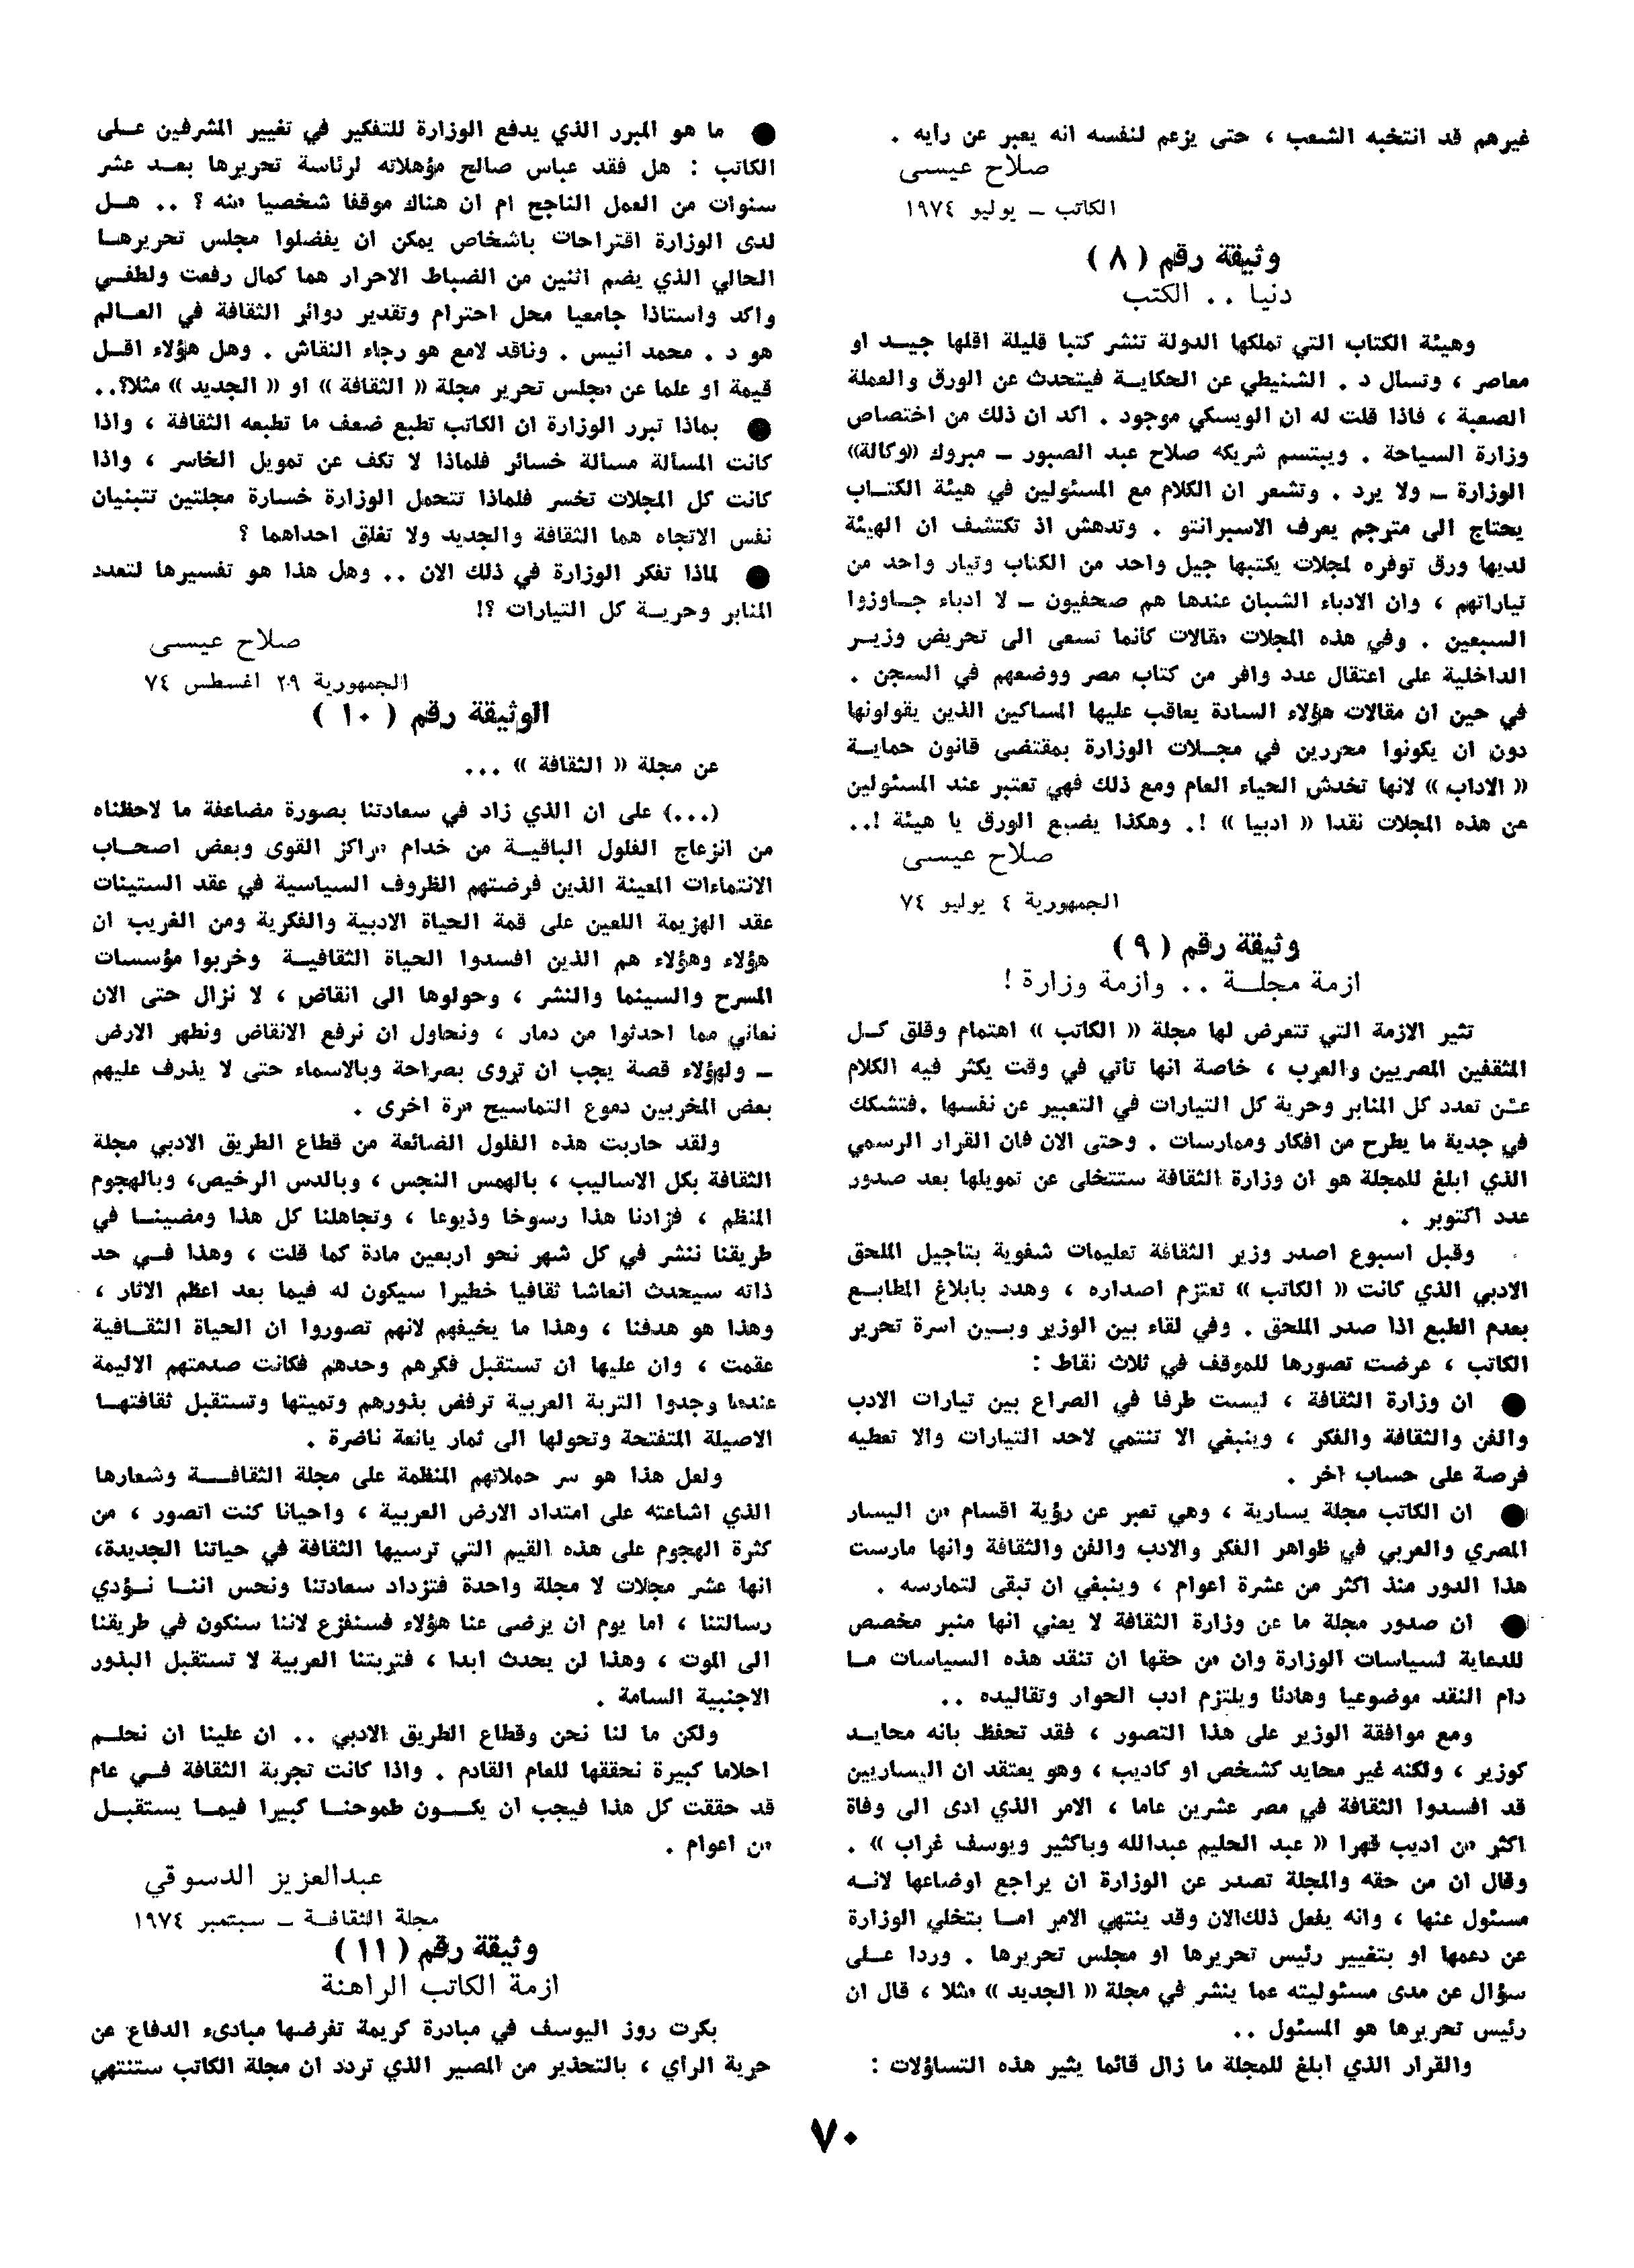 غيرهم قد انتخبه الشعب ، حتى يزعم لنفسه انه يعبر عن رايه .
صلاح عيسى
الكاتب – يوليو ١٩٧٤
وثيقة رقم ( ٨ )
دنيا .. الكتب
وهيئة الكتاب التي تملكها الدولة تنشر كتبا قليلة اقلها جيـد او
معاصر ، وتسال د . الشنيطي عن الحكايـة فيتحدث عن الورق والعملة
الصعبة ، فاذا قلت له ان الويسكي موجود . اكد ان ذلك من اختصاص
وزارة السياحة . ويبتسم شريكه صلاح عبد الصبور – مبروك «وكالة»
الوزارة – ولا يرد . وتشعر ان الكلام مع المسئولين في هيئة الكتـاب
يحتاج الى مترجم يعرف الاسبرانتو . وتدهش اذ تكتشف ان الهيئة
لديها ورق توفره لمجلات يكتبها جيل واحد من الكتاب وتيار واحد من
تياراتهم ، وان الادباء الشبان عندها هم صحفيون – لا ادباء جـاوزوا
السبعين . وفي هذه المجلات مقالات كأنما تسعى الى تحريض وزيـر
الداخلية على اعتقال عدد وافر من كتاب مصر ووضعهم في السجن .
في حين ان مقالات هؤلاء السادة يعاقب عليها المساكين الذين يقولونها
دون ان يكونوا محررين في مجـلات الوزارة بمقتضى قانون حمايـة
« الاداب » لانها تخدش الحياء العام ومع ذلك فهي تعتبر عند المسئولين
عن هذه المجلات نقدا « ادبيا » !. وهكذا يضيع الورق يا هيئة !..
صلاح عيسى
الجمهورية ٤ يوليو ٧٤
وثيقة رقم ( ٩ )
ازمة مجلـــة .. وازمة وزارة !
تثير الازمة التي تتعرض لها مجلة « الكاتب » اهتمام وقلق كـل
المثقفين المصريين والعرب ، خاصة انها تأتي في وقت يكثر فيه الكلام
عـن تعدد كل المنابر وحرية كل التيارات في التعبير عن نفسها .فتشكك
في جدية ما يطرح من افكار وممارسات . وحتى الان فان القرار الرسمي
الذي ابلغ للمجلة هو ان وزارة الثقافة ستتخلى عن تمويلها بعد صدور
عدد اكتوبر .
وقبل اسبوع اصدر وزير الثقافة تعليمات شفوية بتأجيل الملحق
الادبي الذي كانت « الكاتب » تعتزم اصداره ، وهدد بابلاغ المطابـع
بعدم الطبع اذا صدر الملحق . وفي لقاء بين الوزير وبـين اسرة تحرير
الكاتب ، عرضت تصورها للموقف في ثلاث نقاط :
● ان وزارة الثقافة ، ليست طرفا في الصراع بين تيارات الادب
والفن والثقافة والفكر ، وينبغي الا تنتمي لاحد التيارات والا تعطيه
فرصة على حساب اخر .
● ان الكاتب مجلة يسارية ، وهي تعبر عن رؤية اقسام من اليسار
المصري والعربي في ظواهر الفكر والادب والفن والثقافة وانها مارست
هذا الدور منذ اكثر من عشرة اعوام ، وينبغي ان تبقى لتمارسه .
● ان صدور مجلة ما عن وزارة الثقافة لا يعني انها منبر مخصص
للدعاية لسياسات الوزارة وان من حقها ان تنقد هذه السياسات مـا
دام النقد موضوعيا وهادئا ويلتزم ادب الحوار وتقاليده ..
ومع موافقة الوزير على هذا التصور ، فقد تحفظ بانه محايـد
كوزير ، ولكنه غير محايد كشخص او كاديب ، وهو يعتقد ان اليساريين
قد افسدوا الثقافة في مصر عشرين عاما ، الامر الذي ادى الى وفاة
اكثر من اديب قهرا « عبد الحليم عبدالله وباكثير ويوسف غراب » .
وقال ان من حقه والمجلة تصدر عن الوزارة ان يراجع اوضاعها لانـه
مسئول عنها ، وانه يفعل ذلك الان وقد ينتهي الامر امـا بتخلي الوزارة
عن دعمها او بتغيير رئيس تحريرها او مجلس تحريرها . وردا عـلى
سؤال عن مدى مسئوليته عما ينشر في مجلة « الجديد » مثلا ، قال ان
رئيس تحريرها هو المسئول ..
والقرار الذي ابلغ للمجلة ما زال قائما يثير هذه التساؤلات :
● ما هو المبرر الذي يدفع الوزارة للتفكير في تغيير المشرفين عـلى
الكاتب : هل فقد عباس صالح مؤهلاته لرئاسة تحريرها بعـد عشر
سنوات من العمل الناجح ام ان هناك موقفا شخصيا منه ؟ .. هـل
لدى الوزارة اقتراحات باشخاص يمكن ان يفضلوا مجلس تحريرهـا
الحالي الذي يضم اثنين من الضباط الاحرار هما كمال رفعت ولطفـي
واكد واستاذا جامعيا محل احترام وتقدير دوائر الثقافة في العـالم
هو د . محمد انيس . وناقد لامع هو رجاء النقاش . وهل هؤلاء اقـل
قيمة او علما عن مجلس تحرير مجلة « الثقافة » او « الجديد » مثلا؟..
● بماذا تبرر الوزارة ان الكاتب تطبع ضعف ما تطبعه الثقافة ، واذا
كانت المسألة مسألة خسائر فلماذا لا تكف عن تمويل الخاسر ، واذا
كانت كل المجلات تخسر فلماذا تتحمل الوزارة خسارة مجلتين تتبنيان
نفس الاتجاه هما الثقافة والجديد ولا تغلق احداهما ؟
● لماذا تفكر الوزارة في ذلك الان .. وهل هذا هو تفسيرها لتعدد
المنابر وحريـة كل التيارات ؟!
صلاح عيسى
الجمهورية ٢٩ اغسطس ٧٤
الوثيقة رقم ( ١٠ )
عن مجلة « الثقافة » ...
(...) على ان الذي زاد في سعادتنا بصورة مضاعفة ما لاحظناه
من انزعاج الفلول الباقيـة من خدام مراكز القوى وبعض اصحـاب
الانتماءات المعينة الذين فرضتهم الظروف السياسية في عقد الستينات
عقد الهزيمة اللعين على قمة الحياة الادبية والفكرية ومن الغريب ان
هؤلاء وهؤلاء هم الذين افسدوا الحياة الثقافيـة وخربوا مؤسسات
المسرح والسينما والنشر ، وحولوها الى انقاض ، لا نزال حتى الان
نعاني مما احدثوا من دمار ، ونحاول ان نرفع الانقاض ونطهر الارض
– ولهؤلاء قصة يجب ان تروى بصراحة وبالاسماء حتى لا يذرف عليهم
بعض المخربين دموع التماسيح مرة اخرى .
ولقد حاربت هذه الفلول الضائعة من قطاع الطريق الادبي مجلة
الثقافة بكل الاساليب ، بالهمس النجس ، وبالدس الرخيص، وبالهجوم
المنظم ، فزادنا هذا رسوخا وذيوعا ، وتجاهلنا كل هذا ومضينـا في
طريقنا ننشر في كل شهر نحو اربعين مادة كما قلت ، وهذا فـي حد
ذاته سيحدث انعاشا ثقافيا خطيرا سيكون له فيما بعد اعظم الاثار ،
وهذا هو هدفنا ، وهذا ما يخيفهم لانهم تصوروا ان الحياة الثقـافية
عقمت ، وان عليها ان تستقبل فكرهم وحدهم فكانت صدمتهم الاليمة
عندما وجدوا التربة العربية ترفض بذورهم وتميتها وتستقبل ثقافتهـا
الاصيلة المتفتحة وتحولها الى ثمار يانعة ناضرة .
ولعل هذا هو سر حملاتهم المنظمة على مجلة الثقافـــة وشعارها
الذي اشاعته على امتداد الارض العربية ، واحيانا كنت اتصور ، من
كثرة الهجوم على هذه القيم التي ترسيها الثقافة في حياتنا الجديدة،
انها عشر مجلات لا مجلة واحدة فتزداد سعادتنا ونحس اننـا نـؤدي
رسالتنا ، اما يوم ان يرضى عنا هؤلاء فسنفزع لاننا سنكون في طريقنا
الى الموت ، وهذا لن يحدث ابدا ، فتربتنا العربية لا تستقبل البذور
الاجنبية السامة .
ولكن ما لنا نحن وقطاع الطريق الادبي .. ان علينا ان نحلـم
احلاما كبيرة نحققها للعام القادم . واذا كانت تجربة الثقافة فـي عام
قد حققت كل هذا فيجب ان يكـــون طموحنـا كبيرا فيمـا يستقبـل
من اعوام .
عبدالعزيز الدسوقي
مجلة الثقافـة – سبتمبر ١٩٧٤
وثيقة رقم ( ١١ )
ازمة الكاتب الراهنة
بكرت روز اليوسف في مبادرة كريمة تفرضها مبادىء الدفاع عن
حرية الرأي ، بالتحذير من المصير الذي تردد ان مجلة الكاتب ستنتهي
٧٠